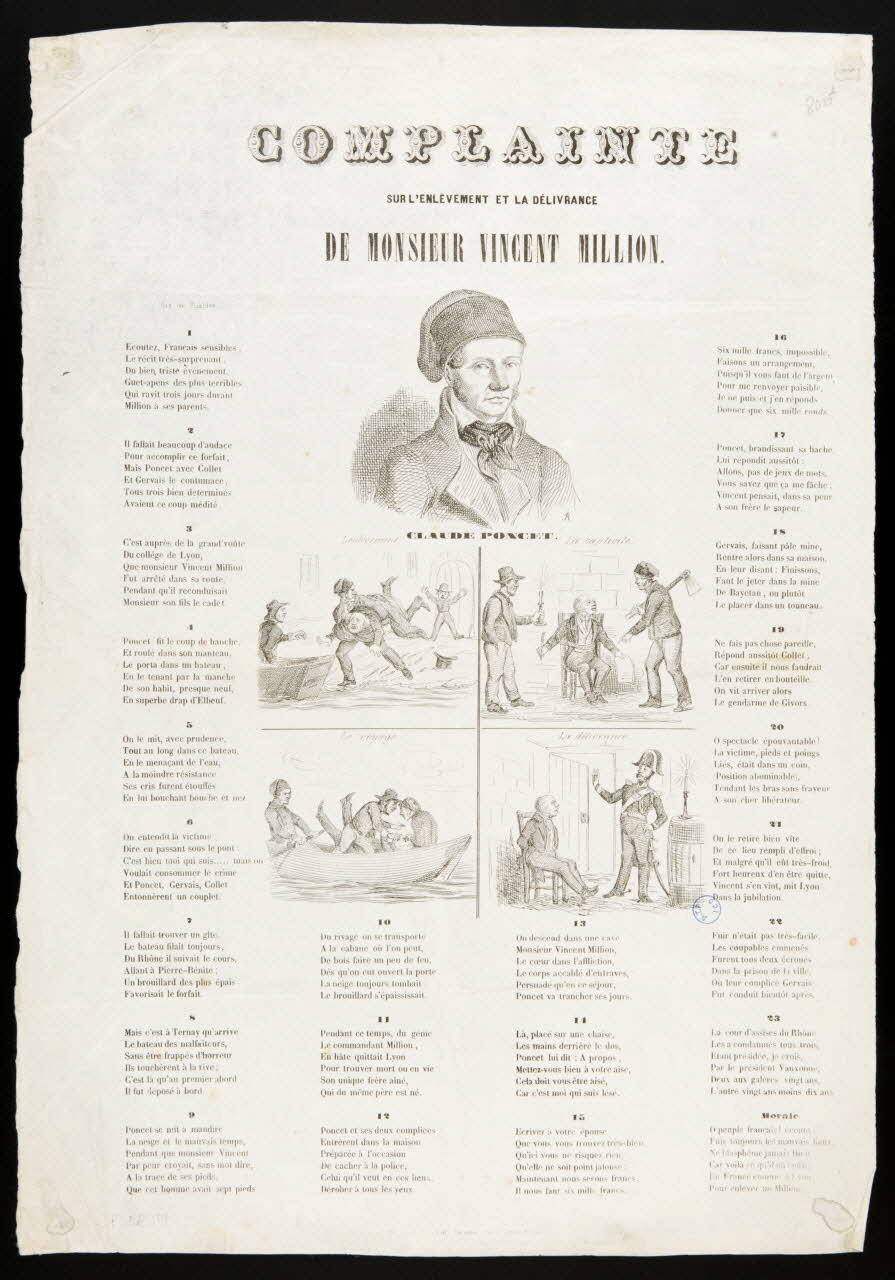 COMPLAINTE
SUR L'ENLÈVEMENT ET LA DÉLIVRANCE
DE MONSIEUR VINCENT MILLION.
CLAUDE PONCET.
La captivité.
Le voyage
La délivrance
1
Ecoutez, Français sensibles,
Le récit très-surprenant,
Du bien triste évènement,
Guet-apens des plus terribles
Qui ravit trois jours durant
Million à ses parents.
2
Il fallait beaucoup d'audace
Pour accomplir ce forfait,
Mais Poncet avec Collet
Et Gervais le contumace,
Tous trois bien déterminés
Avaient ce coup médité.
3
C'est auprès de la grand'voûte
Du collége de Lyon,
Que monsieur Vincent Million
Fut arrêté dans sa route,
Pendant qu'il reconduisait
Monsieur son fils le cadet
4
Poncet fit le coup de hanche,
Et roule dans son manteau,
Le porta dans un bateau,
En le tenant par la manche
De son habit, presque neuf,
En superbe drap d'Elbeuf.
5
On le mit, avec prudence,
Tout au long dans ce bateau,
En le menaçant de l'eau,
A la moindre résistance
Ses cris furent étouffés
En lui bouchant bouche et nez
6
On entendit la victime
Dire en passant sous le pont :
C'est bien moi qui suis..... mais on
Voulait consommer le crime
Et Poncet, Gervais, Collet
Entonnèrent un couplet.
7
Il fallait trouver un gîte,
Le bateau filait toujours,
Du Rhône il suivait le cours,
Allant à Pierre-Bénite ;
Un brouillard des plus épais
Favorisait le forfait.
8
Mais c'est à Ternay qu'arrive
Le bateau des malfaiteurs,
Sans être frappés d'horreur
Ils touchèrent à la rive ;
C'est là qu'au premier abord
Il fut déposé à bord
9
Poncet se mit à maudire
La neige et le mauvais temps,
Pendant que monsieur Vincent
Par peur croyait, sans mot dire,
A la trace de ses pieds,
Que cet homme avait sept pieds
10
Du rivage on se transporte
A la cabane où l'on peut,
De bois faire un peu de feu,
Dès qu'on eut ouvert la porte
La neige toujours tombait
Le brouillard s'épaississait.
11
Pendant ce temps, du génie
Le commandant Million,
En hâte quittait Lyon
Pour trouver mort ou en vie
Son unique frère aîné,
Qui du même père est né.
12
Poncet et ses deux complices
Entrèrent dans la maison
Préparée à l'occasion
De cacher à la police,
Celui qu'il veut en ces lieux,
Dérober à tous les yeux
13
On descend dans une cave
Monsieur Vincent Million,
Le cœur dans l'affliction,
Le corps accablé d'entraves,
Persuadé qu'en ce séjour,
Poncet va trancher ses jours.
14
Là, placé sur une chaise,
Les mains derrière le dos,
Poncet lui dit : A propos,
Mettez-vous bien à votre aise,
Cela doit vous être aisé,
Car c'est moi qui suis lésé.
15
Ecrivez à votre épouse
Que vous vous trouvez très-bien
Qu'ici vous ne risquez rien,
Qu'elle ne soit point jalouse :
Maintenant nous serons francs,
Il nous faut six mille francs.
16
Six mille francs, impossible,
Faisons un arrangement,
Puisqu'il vous faut de l'argent
Pour me renvoyer paisible,
Je ne puis et j'en réponds
Donner que six mille ronds.
17
Poncet, brandissant sa hache
Lui répondit aussitôt :
Allons, pas de jeux de mots,
Vous savez que ça me fâche ;
Vincent pensait, dans sa peur
A son frère le sapeur.
18
Gervais, faisant pâle mine,
Rentre alors dans sa maison,
En leur disant : Finissons,
Faut le jeter dans la mine
De Bayetan, ou plutôt
Le placer dans un tonneau.
19
Ne fais pas chose pareille,
Répond aussitôt Collet,
Car ensuite il nous faudrait
L'en retirer en bouteille.
On vit arriver alors
Le gendarme de Givors.
20
O spectacle épouvantable !
La victime, pieds et poings
Liés, était dans un coin,
Position abominable),
Tendant les bras sans frayeur
A son cher libérateur.
21
On le retire bien vite
De ce lieu rempli d'effroi ;
Et malgré qu'il eût très-froid,
Fort heureux d'en être quitte,
Vincent s'en vint, mit Lyon
Dans la jubilation.
22
Fuir n'était pas très-facile,
Les coupables emmenés
Furent tous deux écroués
Dans la prison de la ville,
Où leur complice Gervais
Fut conduit bientôt après.
23
La cour d'assises du Rhône
Les a condamnés tous trois,
Etant présidée, je crois,
Par le président Vauxonne,
Deux aux galères vingt ans,
L'autre vingt ans moins dix ans
Morale
O peuple français !
Fuis toujours les mauvais lieux,
Ne blasphème jamais Dieu
Car voilà ce qu'il en
En France comme à Lyon
Pour enlever un Million